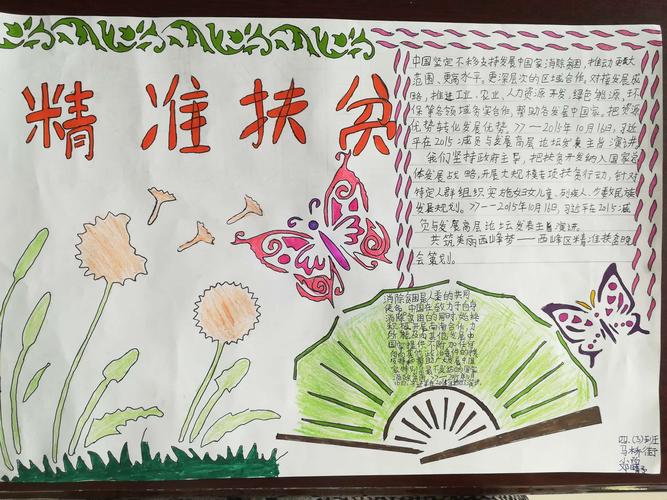 精准扶贫
中国坚定不移支持发展中国家消除贫困，推动更大
范围、更高水平。更深层次的区域合作，对接发展战
略，推进工业、农业、人力资源开发、绿色能源、环
保等各领域务实合作，帮助各发展中国家，把资源
优势转化发展优势。77—2015年10月16日，习近
平在2015减贫与发展高层论坛发表主旨演讲
我们坚持政府主导，把扶贫开发纳入国家总
体发展战略，开展大规模专项扶贫行动，针对
特定人群组织实施妇女儿童、残疾人、少数民族
发展规划。77—2015年10月16日，习近平在2015减
贫与发展高层论坛发表主旨演讲
共筑美丽西峰梦——西峰区精准扶贫晚
会策划。
消除贫困是人类的共同
使命。中国在致力于自身
消除贫困的同时，始终
积极开展南南合作，力
所能及向其他发展中
国家提供不附加任何
四、(3)班
马桥街